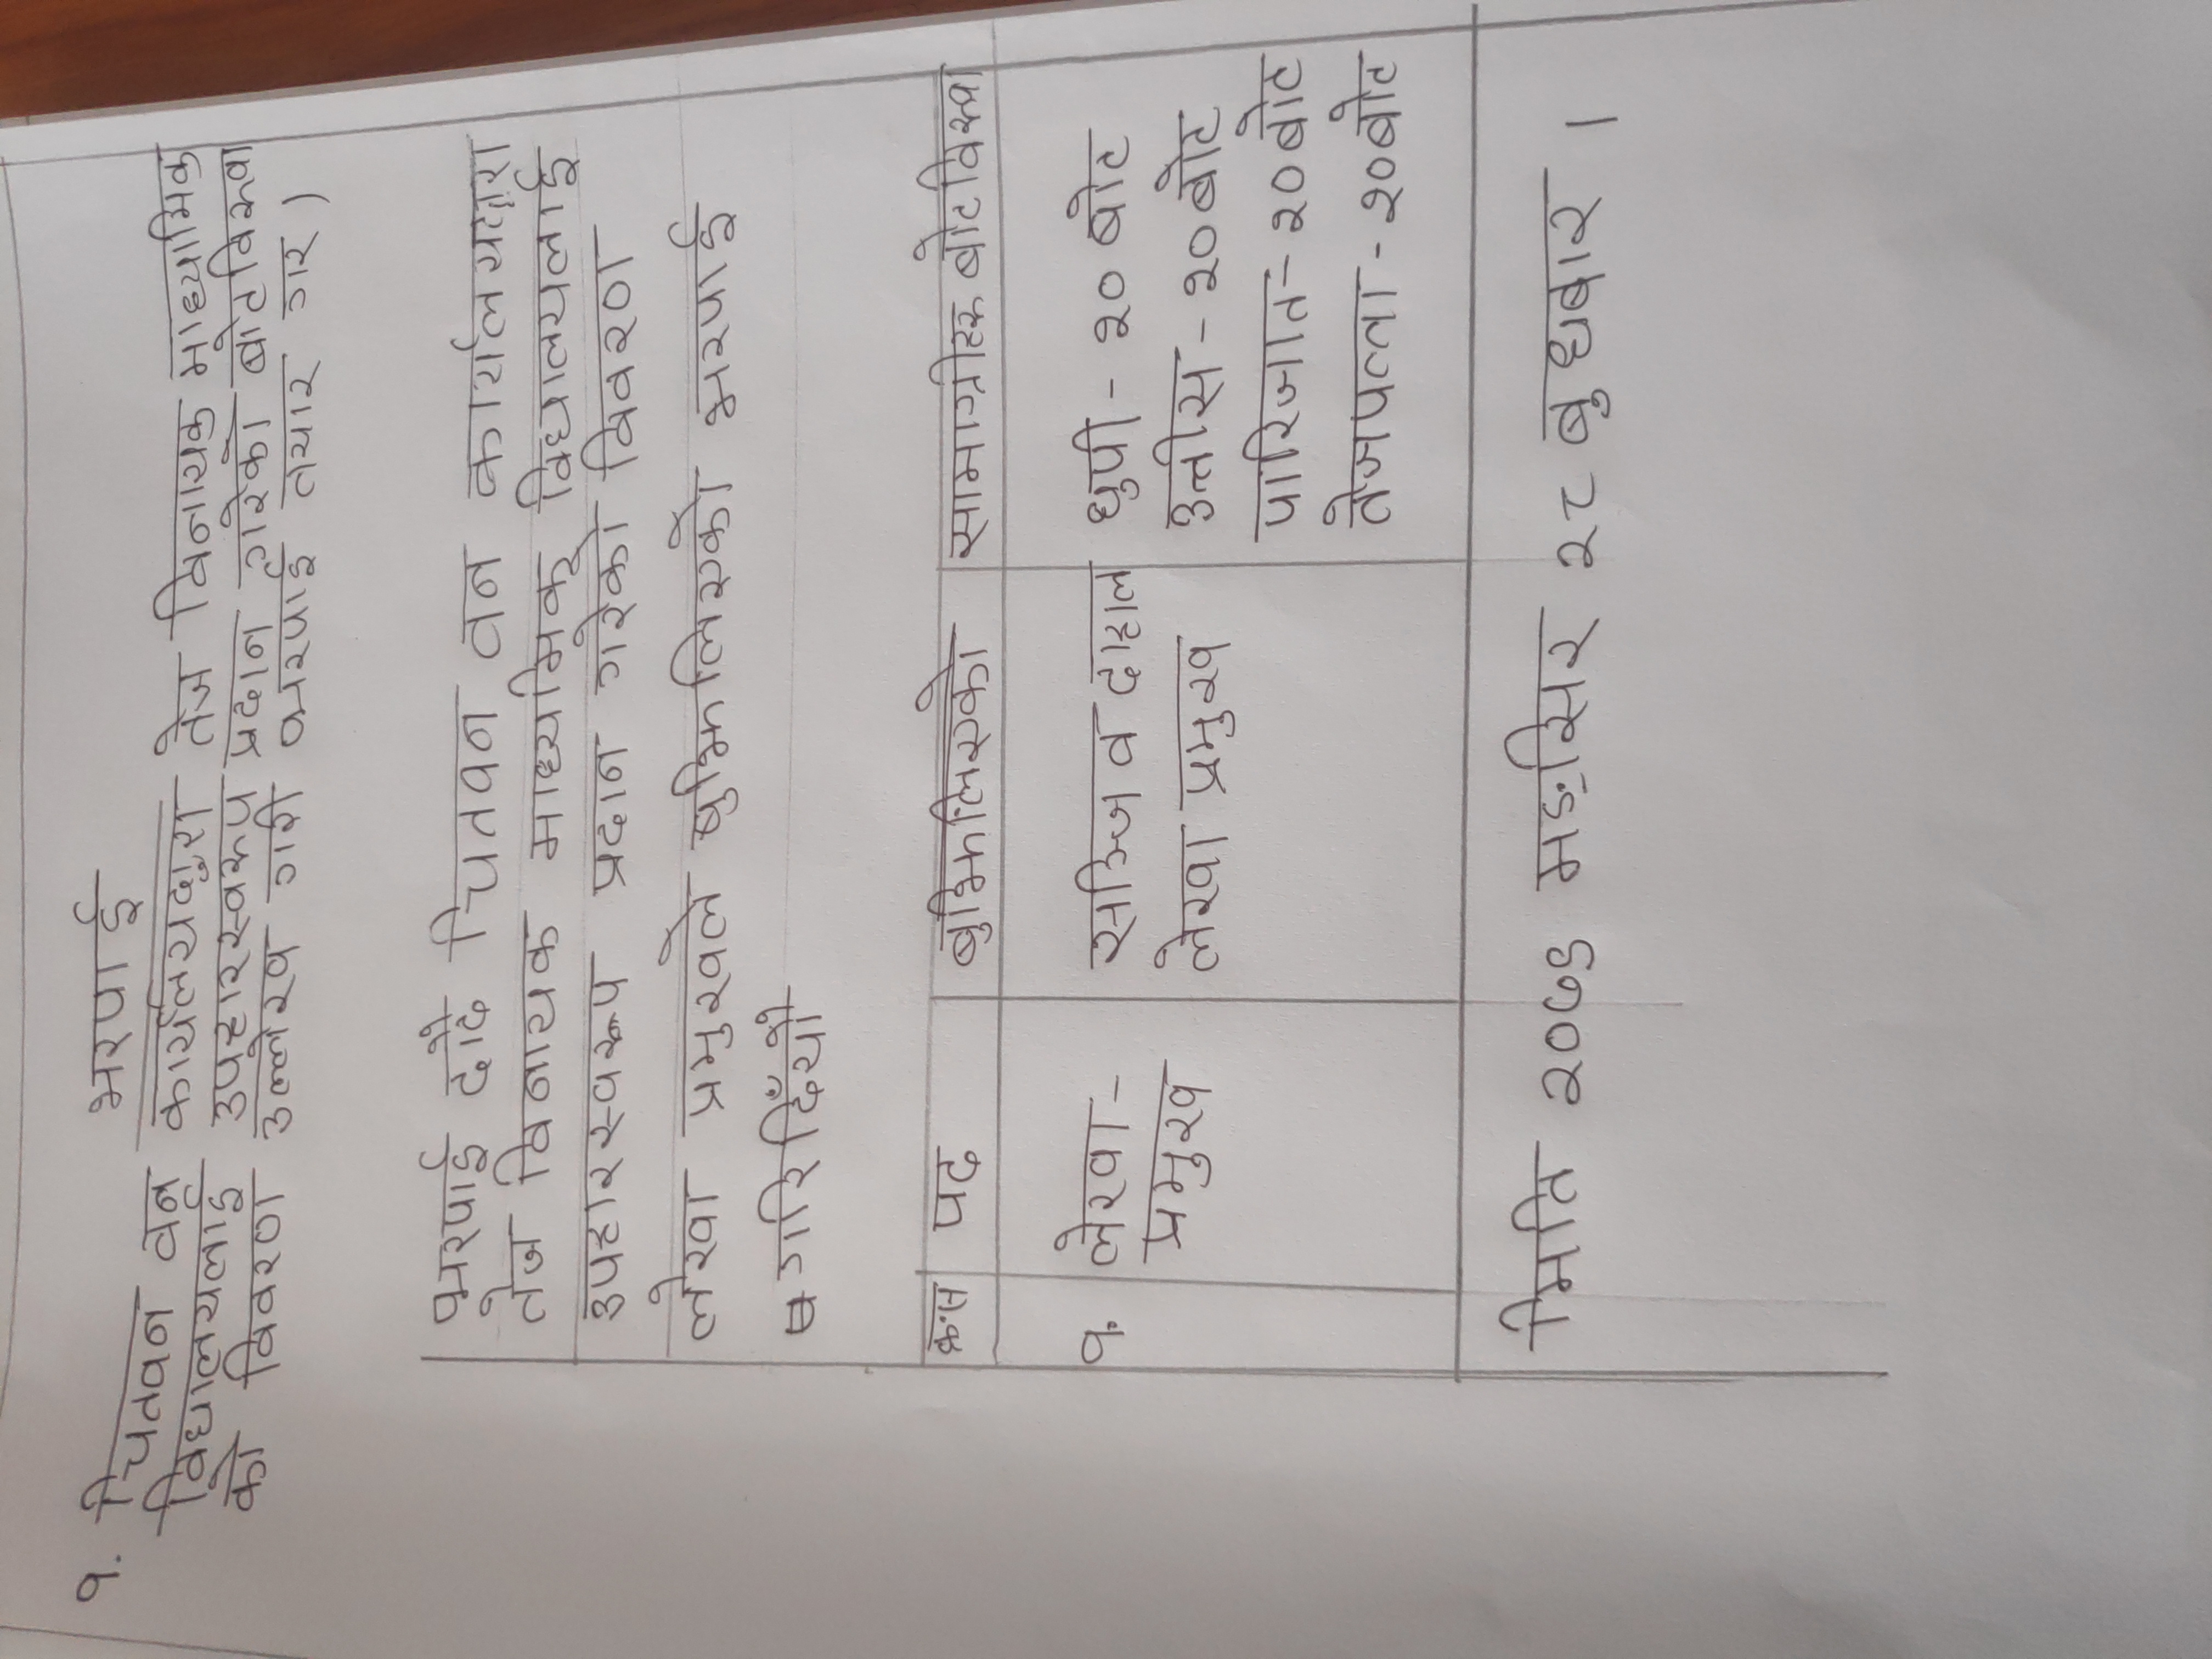 भरपाई
१. चितवन वन कार्यलयद्वारा तेज विनायक माध्यामिक
विद्यालयलाई उपहारस्वरुप प्रदान गरेको बोटविरुवा
को विवरण उल्लेख गरी भरपाई तयार गर।
भरपाई दादै चितवन वन कार्यलयद्वारा
तेज विनायक माध्यमिक विद्यालयलाई
उपहारस्वरूप प्रदान गरेको विवरण
लेखा प्रमुखले बुझिलिएको भरपाई
गरिदियौँ
क्र.स पद बुझिलिएको सामाग्रीहरु बोटविरुवा
१. लेखा- सञ्जिव दाहाल धुपी - २० बोट
प्रमुख लेखा प्रमुख उत्तीस - २० बोट
पारिजात - २० बोट
तेजपत्ता - २० बोट
मिति २०७९ मङ्सिर २८ बुधबार ।